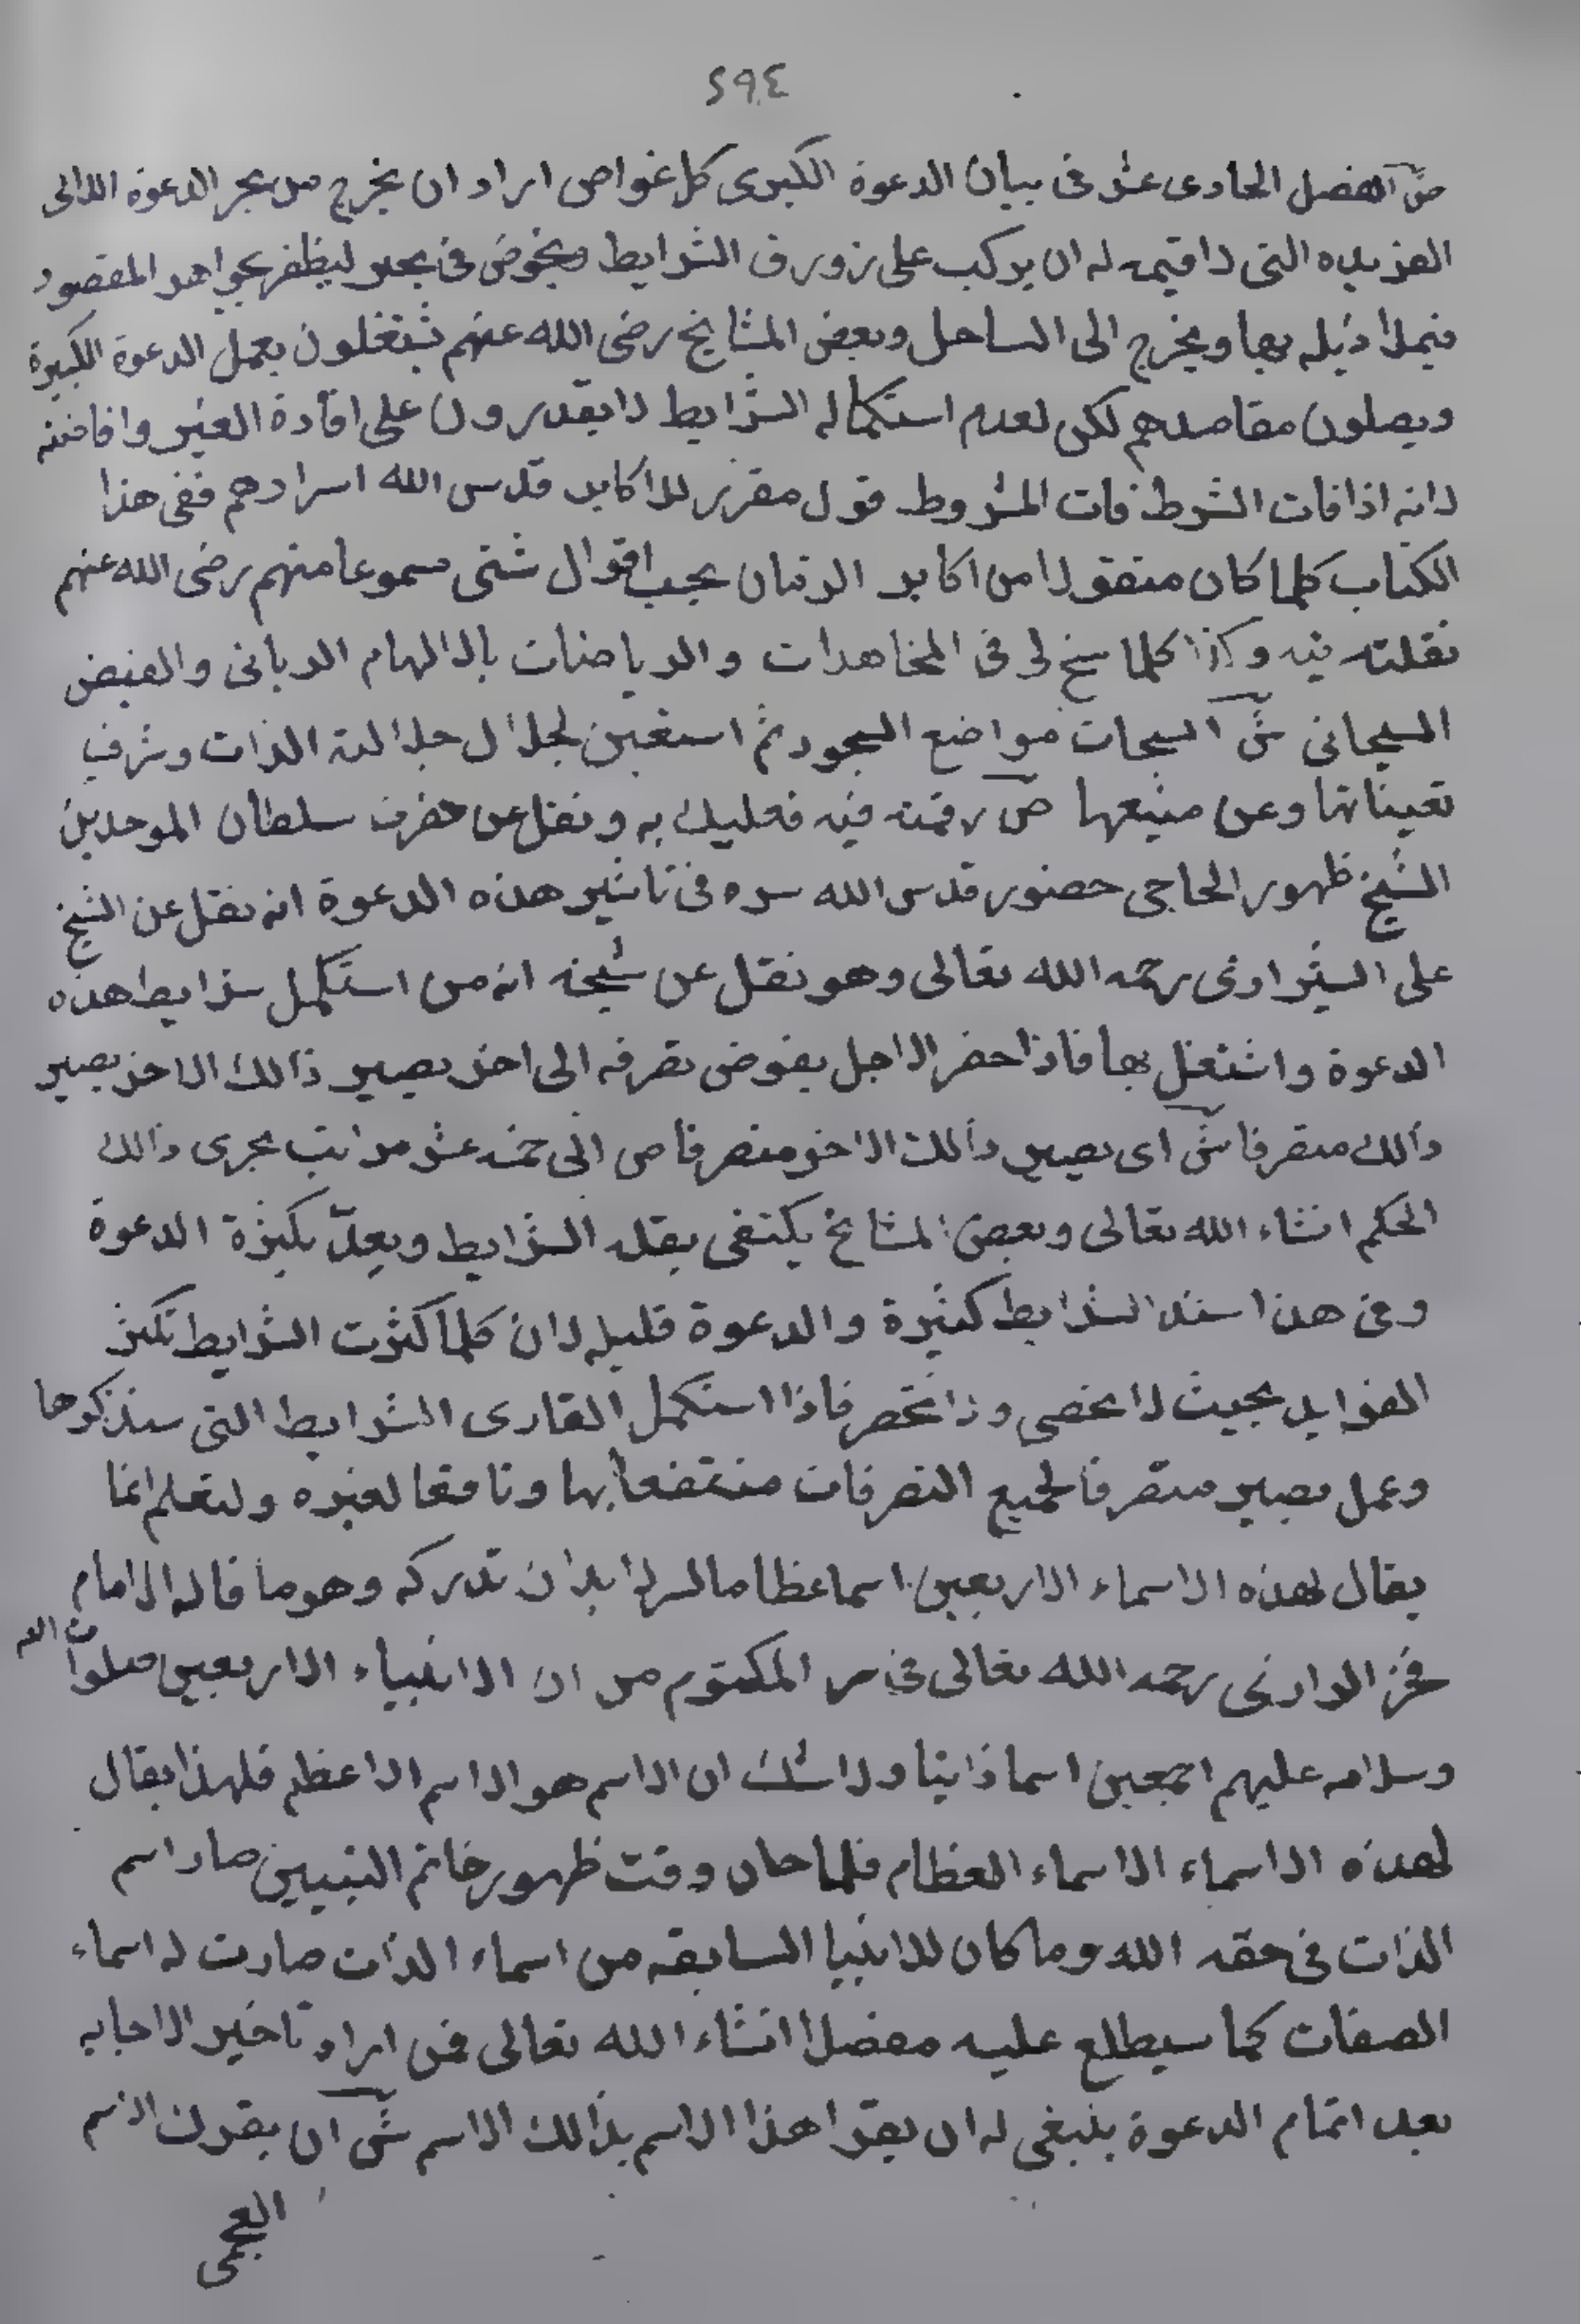 ٢٩٤
صّ الفصل الحادى عشر فى بيان الدعوة الكبرى كل غواص اراد ان يخرج من بحر الدعوة اللالى
الفريده التى لا قيمه له ان يركب على زورق الشرايط ويخوض فى بحر ليظفر بجواهر المقصود
فيملأ ذيله بها ويخرج الى الساحل وبعض المشايخ رضى الله عنهم يشتغلون بعمل الدعوة الكبيرة
ويصلون مقاصدهم لكن لعدم استكماله الشرايط لا يقدرون على افادة الغير وافاضته
لانه اذا فات الشرط فات المشروط قول مقرر للاكابر قدس الله اسرارهم ففى هذا
الكتاب كلما كان منقولا من اكابر الزمان بحسب اقوال شتى مسموعا منهم رضى الله عنهم
نقلته فيه وكذا كلما سنح لى فى المجاهدات والرياضات بالالهام الربانى والفيض
السبحانى شّ السبحات مواضع السجود ثم استعين لجلال جلالة الذات وشرف
تعيناتها وعن منبعها صّ رقمته فيه فعليك به ونقل عن حضرت سلطان الموحدين
الشيخ ظهور الحاجى حضور قدس الله سره فى تاثير هذه الدعوة انه نقل عن الشيخ
على الشيرازى رحمه الله تعالى وهو نقل عن شيخه انه من استكمل شرايط هذه
الدعوة واشتغل بها فاذا حضر الاجل يفوض تصرفه الى اخر يصير ذالك الاخر يصير
ذالك متصرفا شّ اى يصير ذالك الاخر متصرفا ص الى خمسه عشر مراتب يجرى ذالك
الحكم انشاء الله تعالى وبعض المشايخ يكتفى بقله الشرايط ويعمل بكثرة الدعوة
وفى هذا السند الشرايط كثيرة والدعوة قليله لان كلما كثرت الشرايط تكثر
الفوايد بحيث لا يحصى ولا تحصر فاذا استكمل القارى الشرايط التى سنذكرها
وعمل يصير متصرفا لجميع التصرفات منتفعا بها ونافعا لغيره ولتعلم انما
يقال لهذه الاسماء الاربعين اسما عظاما السر لابد ان تدركه وهو ما قاله الامام
فخر الدارزى رحمه الله تعالى فى سر المكتوم من ان الانبياء الاربعين صلوات الله
وسلامه عليهم اجمعين اسما ذاتيا ولا شك ان الاسم هو الاسم الاعظم فلهذا يقال
لهذه الاسماء الاسماء العظام فلما حان وقت ظهور خاتم النبيين صار اسم
الذات فى حقه الله وما كان للانبيا السابقه من اسماء الذات صارت له اسماء
الصفات كما سيطلع عليه مفصلا انشاء الله تعالى فمن اراد تاخير الاجابه
بعد اتمام الدعوة ينبغى له ان يقرا هذا الاسم بذالك الاسم شّ ان يقرن الاسم
العجمى